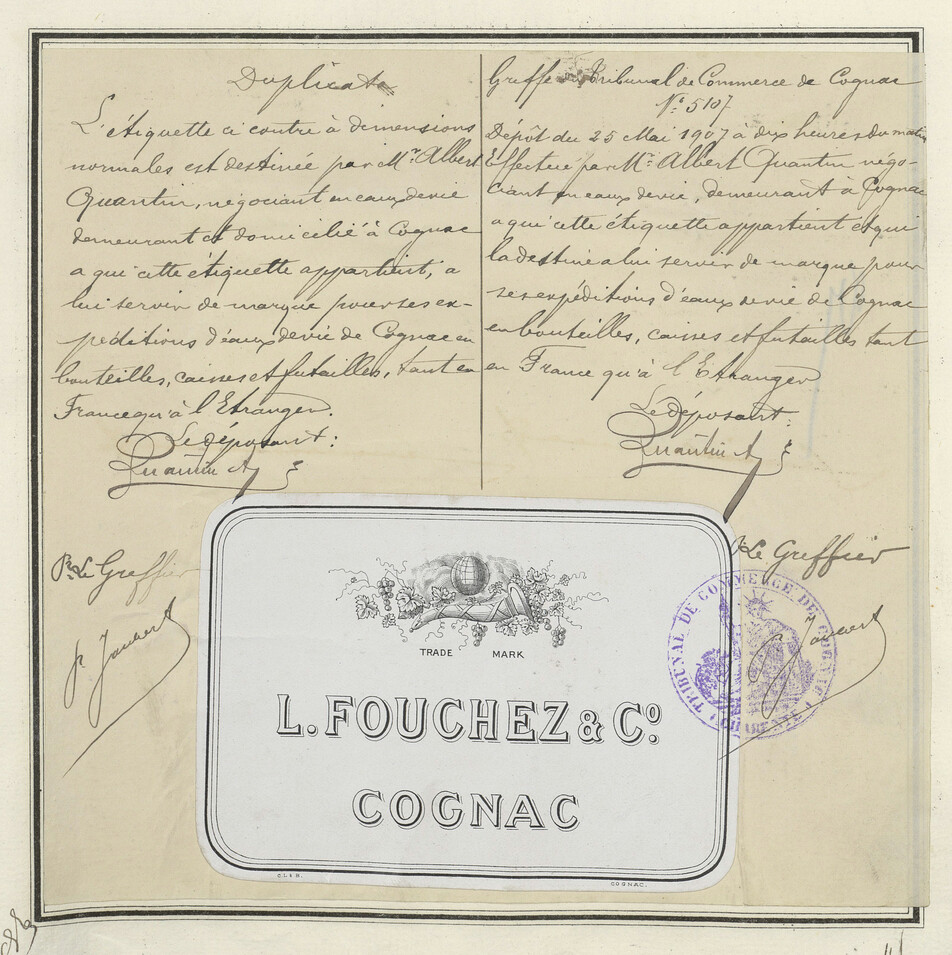 Duplicata
L'étiquette ci contre à dimensions
normales est destinée par Mr. Albert
Quantin, négociant en eaux de vie
demeurant et domicilié à Cognac
a qui cette étiquette appartient, a
lui servir de marque pour ses ex-
péditions d'eaux de vie de Cognac en
bouteilles, caisses et futailles, tant en
France qu'à l'Etranger.
Le déposant:
Quantin A
Pr. Le Greffier
P. Jaubert
Greffe du Tribunal de Commerce de Cognac
No. 5107
Dépôt du 25 Mai 1907 à dix heures du matin
Effectué par Mr. Albert Quantin négo-
ciant en eaux de vie, demeurant à Cognac
a qui cette étiquette appartient et qui
la destine a lui servir de marque pour
ses expéditions d'eaux de vie de Cognac
en bouteilles, caisses et futailles tant
en France qu'à l'Etranger
Le déposant:
Quantin A
Pr. Le Greffier
P. Jaubert
TRIBUNAL DE COMMERCE DE COGNAC
(CHARENTE)
TRADE MARK
L. FOUCHEZ & Co.
COGNAC
COGNAC.